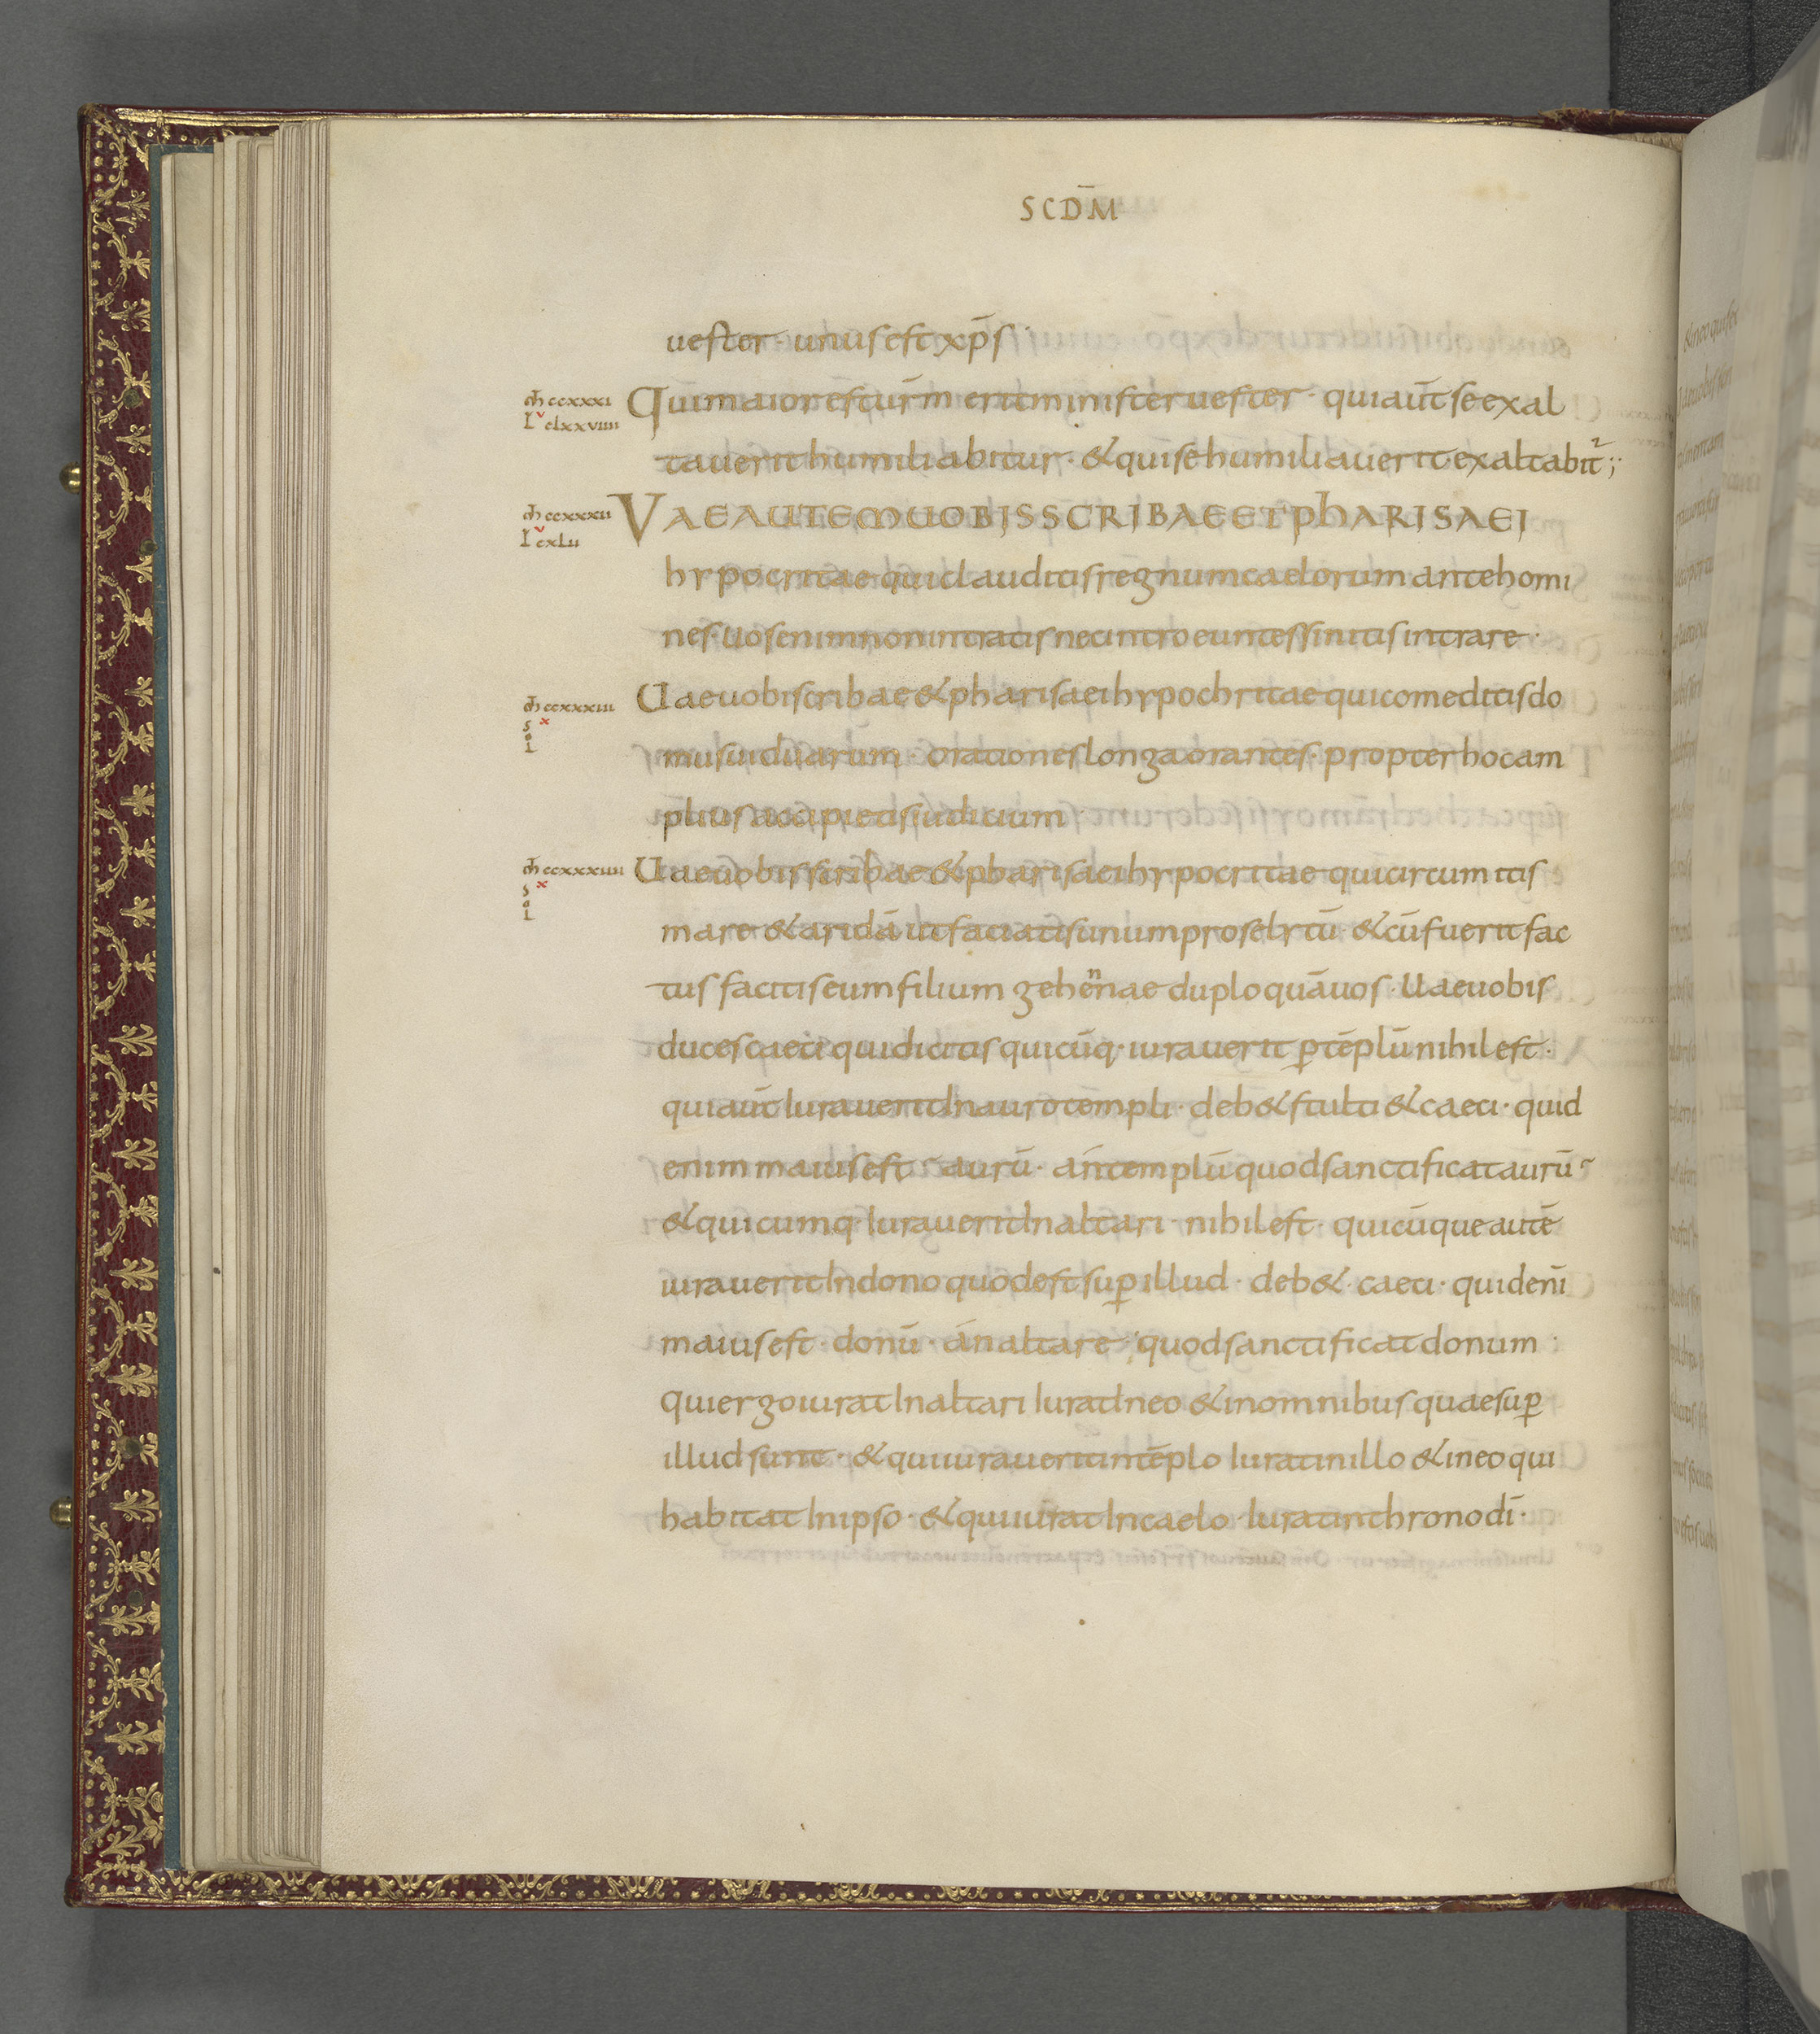 SCD̄M
uester· unus est xp̄s·
m̄ ccxxxi
L v clxxviiii
Qui maior est ur̄m erit minister uester· qui aut̄ se exal
tauerit humiliabitur· & qui se humiliauerit exaltabit̄;
m̄ ccxxxii
L v cxlii
VAE AUTEM UOBIS SCRIBAE ET PHARISAEI
hypocritae qui clauditis regnum caelorum ante homi
nes· uos enim non intratis nec intro euntes sinitis intrare·
m̄ ccxxxiii
x
sol
Uae uobis cribae & pharisaei hypochritae qui comeditis do
mus uiduarum· orationes longa orantes· propter hoc am
plius accipietis iudicium
m̄ ccxxxiiii
x
sol
Uae uobis scribae & pharisaei hypocritae qui circumitis
mare & aridā ut faciatis unum proselytū & cū fuerit fac
tus facitis eum filium gehennae duplo quā uos· Uae uobis
duces caeci qui dicitis quicūq· iurauerit p̱ tēplū nihil est·
qui aut̄ Iurauerit In auro templi· deb& stulti & caeci· quid
enim maius est aurū· án templū quod sanctificat aurū
& quicumq· Iurauerit In altari· nihil est· quicūque autē
iurauerit In dono quod est sup̱ illud· deb&· caeci· quid eni̅
maius est· donū· án altare· quod sanctificat donum
Qui ergo iurat In altari Iurat In eo & in omnibus quae sup̱
illud sunt· & qui iurauerit in tēplo Iurat in illo & in eo qui
habitat In ipso· & qui iurat In caelo· Iurat in throno dī·